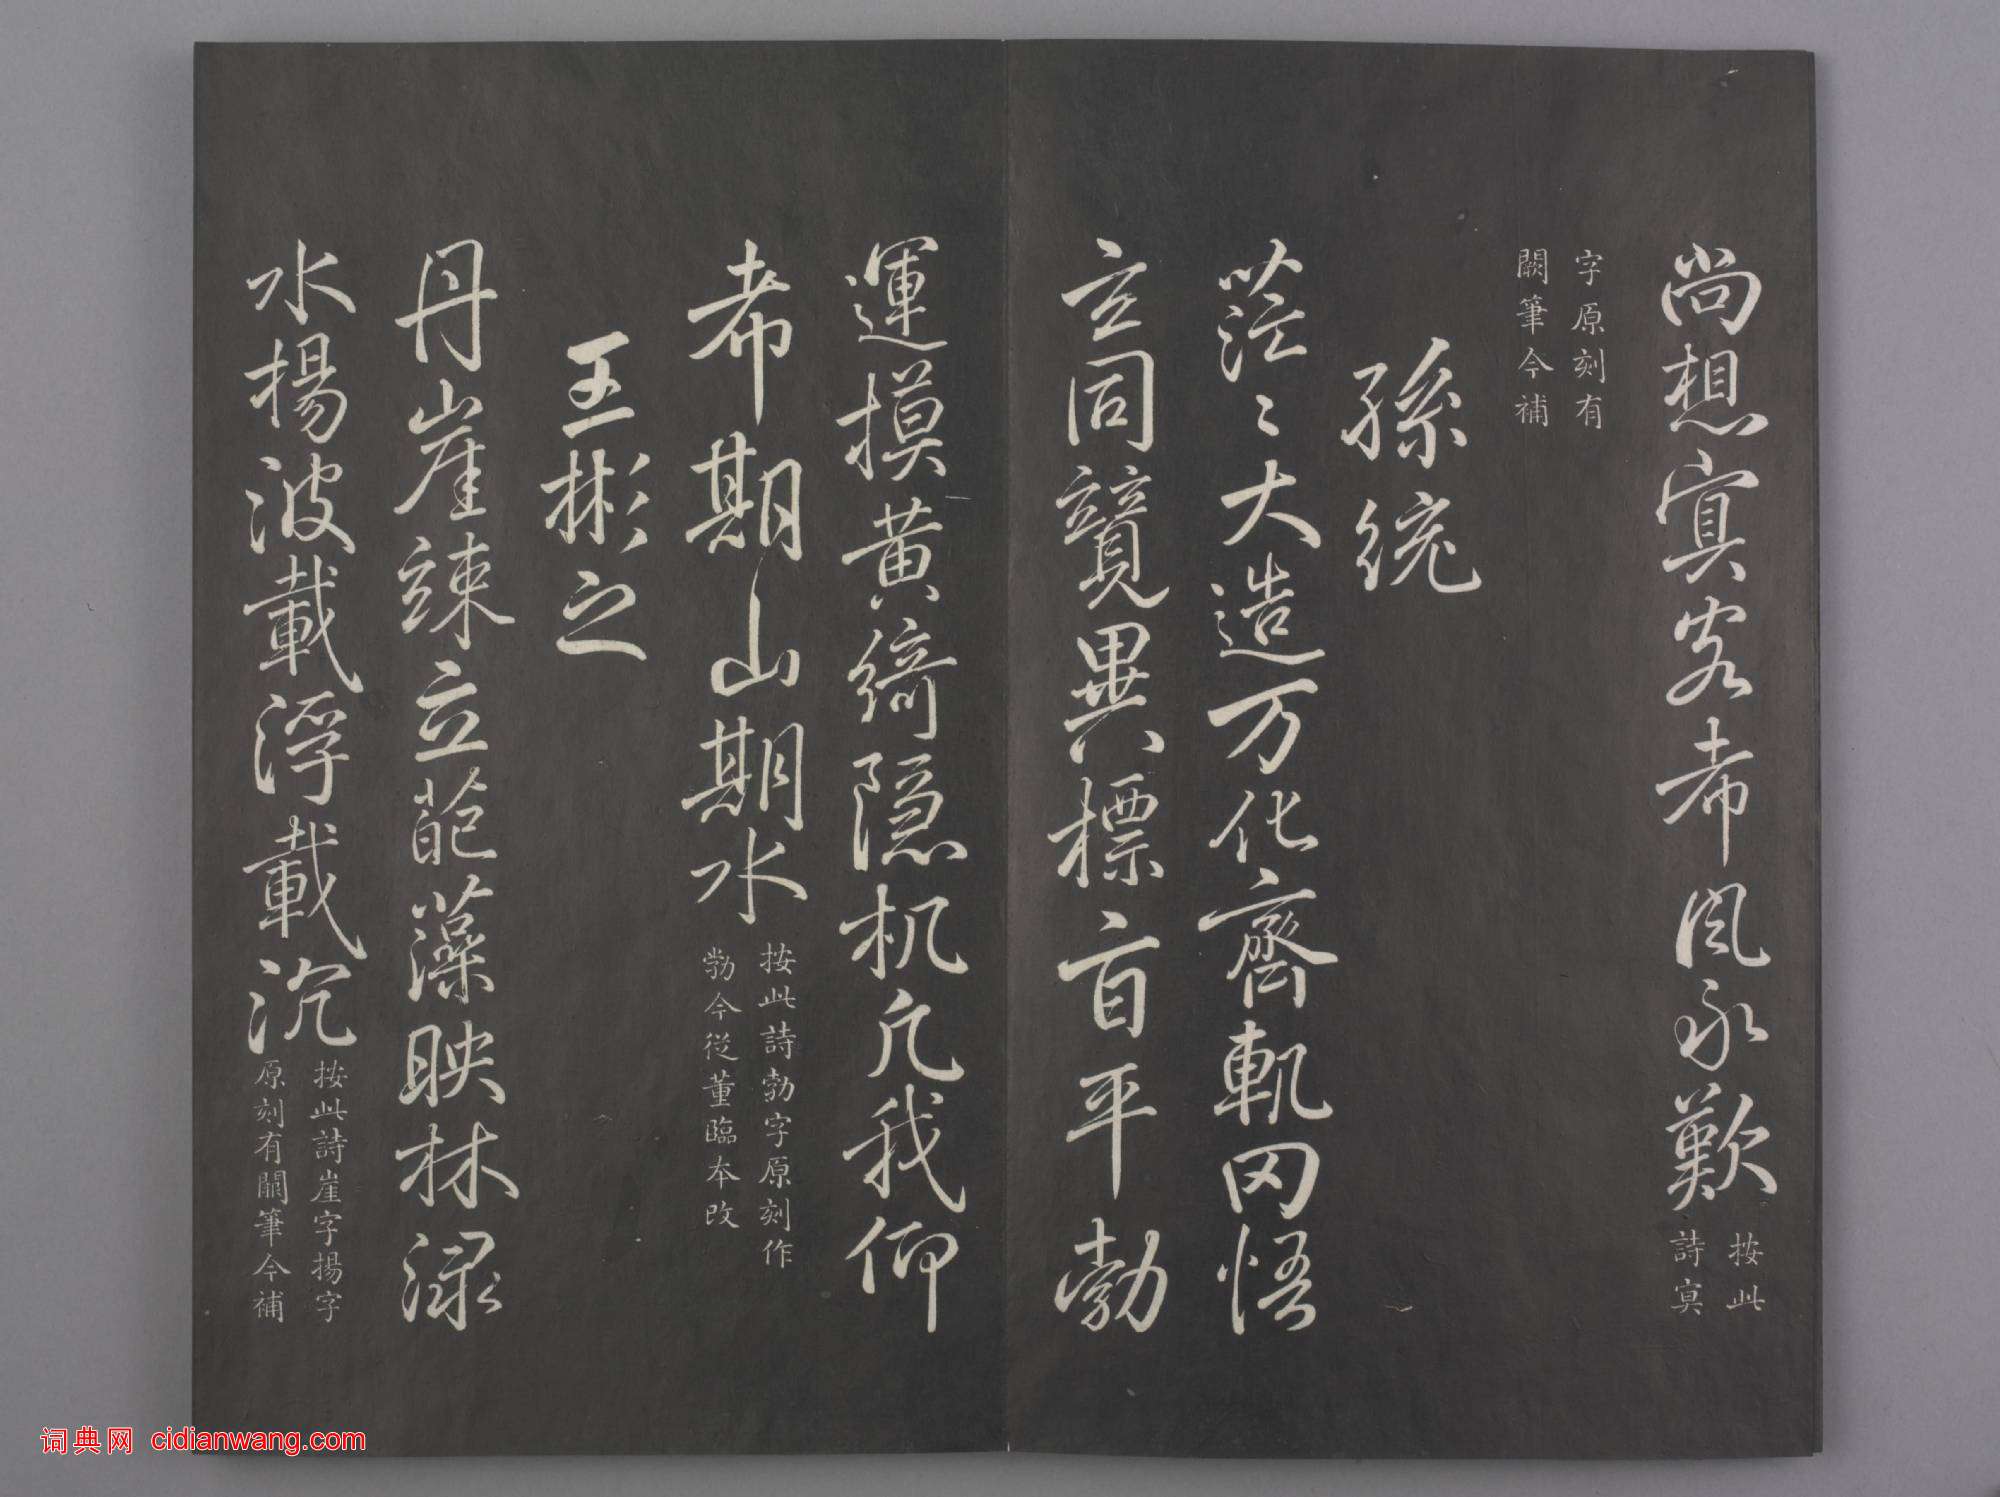 尚想㝠客希風永歎
按此
詩㝠
字原刻有
闕筆今補
孫統
茫〻大造万化齊軌罔悟
玄同競異標旨平勃
運摸黃綺隐机凡我仰
希期山期水
按此詩勃字原刻作
㔟今從董臨本改
王彬之
丹崖竦立葩藻映林渌
水揚波載浮載沉
按此詩崖字揚字
原刻有闕筆今補
词典网 cidianwang.com